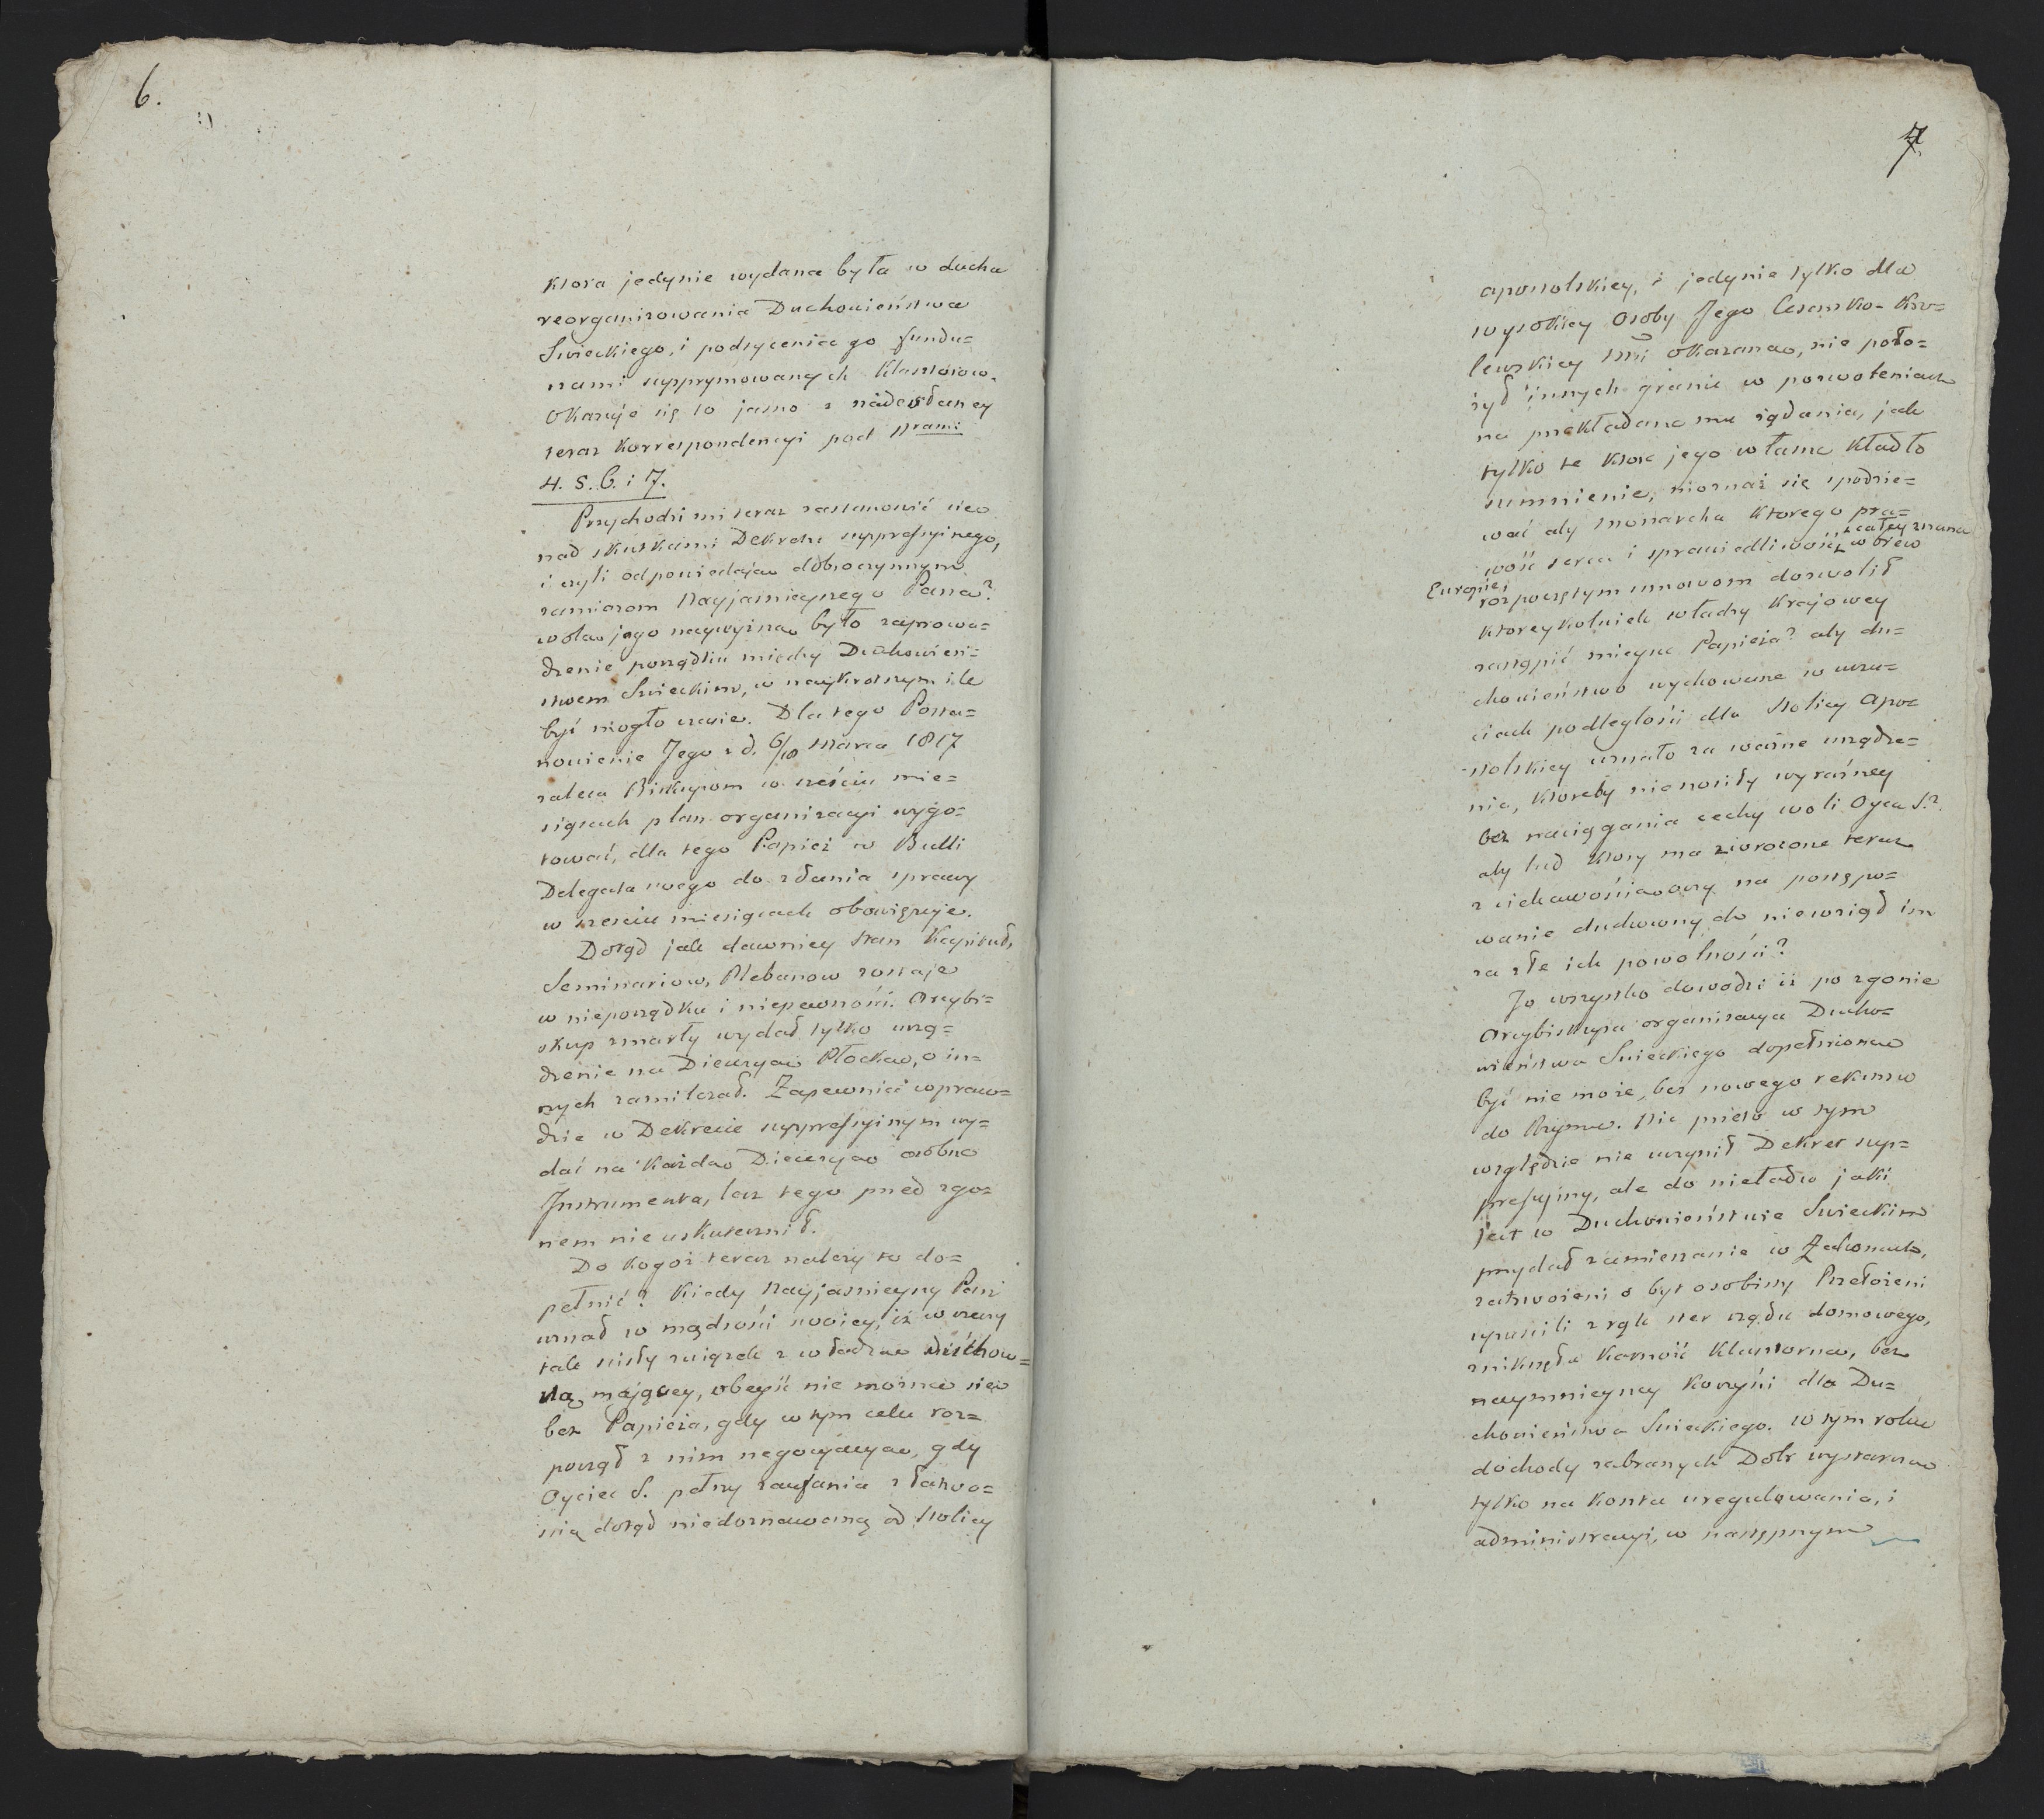 6.
ktora jedynie wydana była w duchu
reorganizowania Duchowieństwa
Swieckiego, i podsycenia go fundu=
szami supprymowanych Klasztorow.
Okazuje się to jasno z nadesłaney
teraz korrespondencyi pod Nrami
4. 5. 6. i 7.
Przychodzi mi teraz zastanowić siew
nad skutkami Dekretu suppressyinego,
i czyli odpowiedają dobroczynnym
zamiarom Nayjaśnieyszego Pana?
wolą jego naywyższą było zaprowa=
dzenie porządku między Duchowień=
stwem Swieckim, w naykrotszym ile
być mogło czasie. Dla tego Posta=
nowienie Jego z d. 6/18 Marca 1817
zaleca Biskupom w sześciu mie=
siącach plan organizacyi wygo=
tować, dla tego Papież w Bulli
Delegata swego do zdania sprawy
w sześciu miesiącach obowięzuje.
Dotąd jak dawniey stan Kapituł,
Seminariow, Plebanow zostaje
w nieporządku i niepewności. Arcybi=
skup zmarły wydał tylko urzą=
dzenie na Diecezyą Płocką, o in=
nych zamilczał. Zapewnić wpraw=
dzie w Dekrecie suppressyinym wy=
dać na każdą Diecezyą osobne
Instrumenta, lecz tego przed zgo=
nem nieuskutecznił.
Do kogoż teraz należy to do=
pełnić? kiedy Nayjaśnieyszy Pan
uznał w mądrości swoiey, iż w rzeczy
tak scisły związek z władzą duchow=
ną maiącey, obeyść nie można siew
bez Papieża, gdy w tym celu roz=
począł z nim negocyacyą, gdy
Oyciec S. pełny zaufania z łatwo=
scią dotąd niedoznawaną od stolicy
7.
apostolskiey, i jedynie tylko dla
wysokiey Osoby Jego Cesarsko-Kro=
lewskiey Mci okazaną, nie poło=
żył innych granic w pozwoleniach
na przekładane mu żądania, jak
tylko te ktore jego własne kładło
sumnienie, możnaż się spodzie=
wać aby Monarcha ktorego pra=
wość serca i sprawiedliwość całey znana
Europie, wbrew
rozpoczętym umowom dozwolił
ktoreykolwiek władzy krajowey
zastąpić mieysce Papieża? aby du=
chowieństwo wychowane w uczu=
ciach podległości dla stolicy Apo=
stolskiey uznało za ważne urządze=
nia, ktoreby nienosiły wyraźney
bez naciągania cechy woli Oyca S.?
aby lud ktory ma zwrocone teraz
z ciekawością oczy na postępo=
wanie duchowny do niewziął im
za złe ich powolności?
To wszystko dowodzi iż po zgonie
Arcybiskupa organizacya Ducho=
wieństwa Swieckiego dopełnioną
być nie może, bez nowego rekursu
do Rzymu. Nic przeto w tym
względzie nie uczynił Dekret sup=
pressyiny, ale do nieładu jaki
jest w Duchowieństwie Swieckim
przydał zamieszanie w Zakonach,
zatrwożeni o byt osobisty Przełożeni
upuscili z rąk ster rządu domowego,
znikneła karność klasztorna, bez
naymnieyszey korzyści dla Du=
chowieństwa Swieckiego. W tym roku
dochody zabranych Dobr wystarczą
tylko na koszta uregulowania, i
administracyi, w następnym